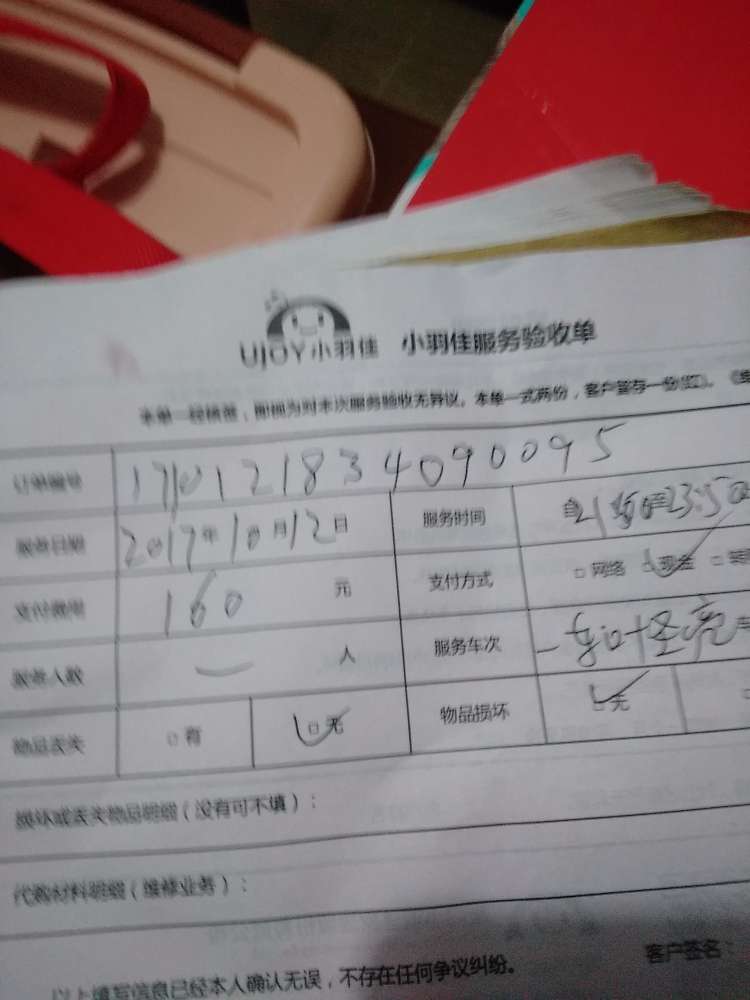 UJOY小羽佳 小羽佳服务验收单
本单一经核签，即视为对本次服务验收无异议。本单一式两份，客户留存一份
订单编号 1710121834090095
服务日期 2017年10月12日 服务时间
支付费用 160 元 支付方式 □网络 □现金 □转
服务人数 一 人 服务车次 一
物品丢失 □有 □无 物品损坏 □无
损坏或丢失物品明细（没有可不填）：
代购材料明细（维修业务）：
客户签名：
以上填写信息已经本人确认无误，不存在任何争议纠纷。